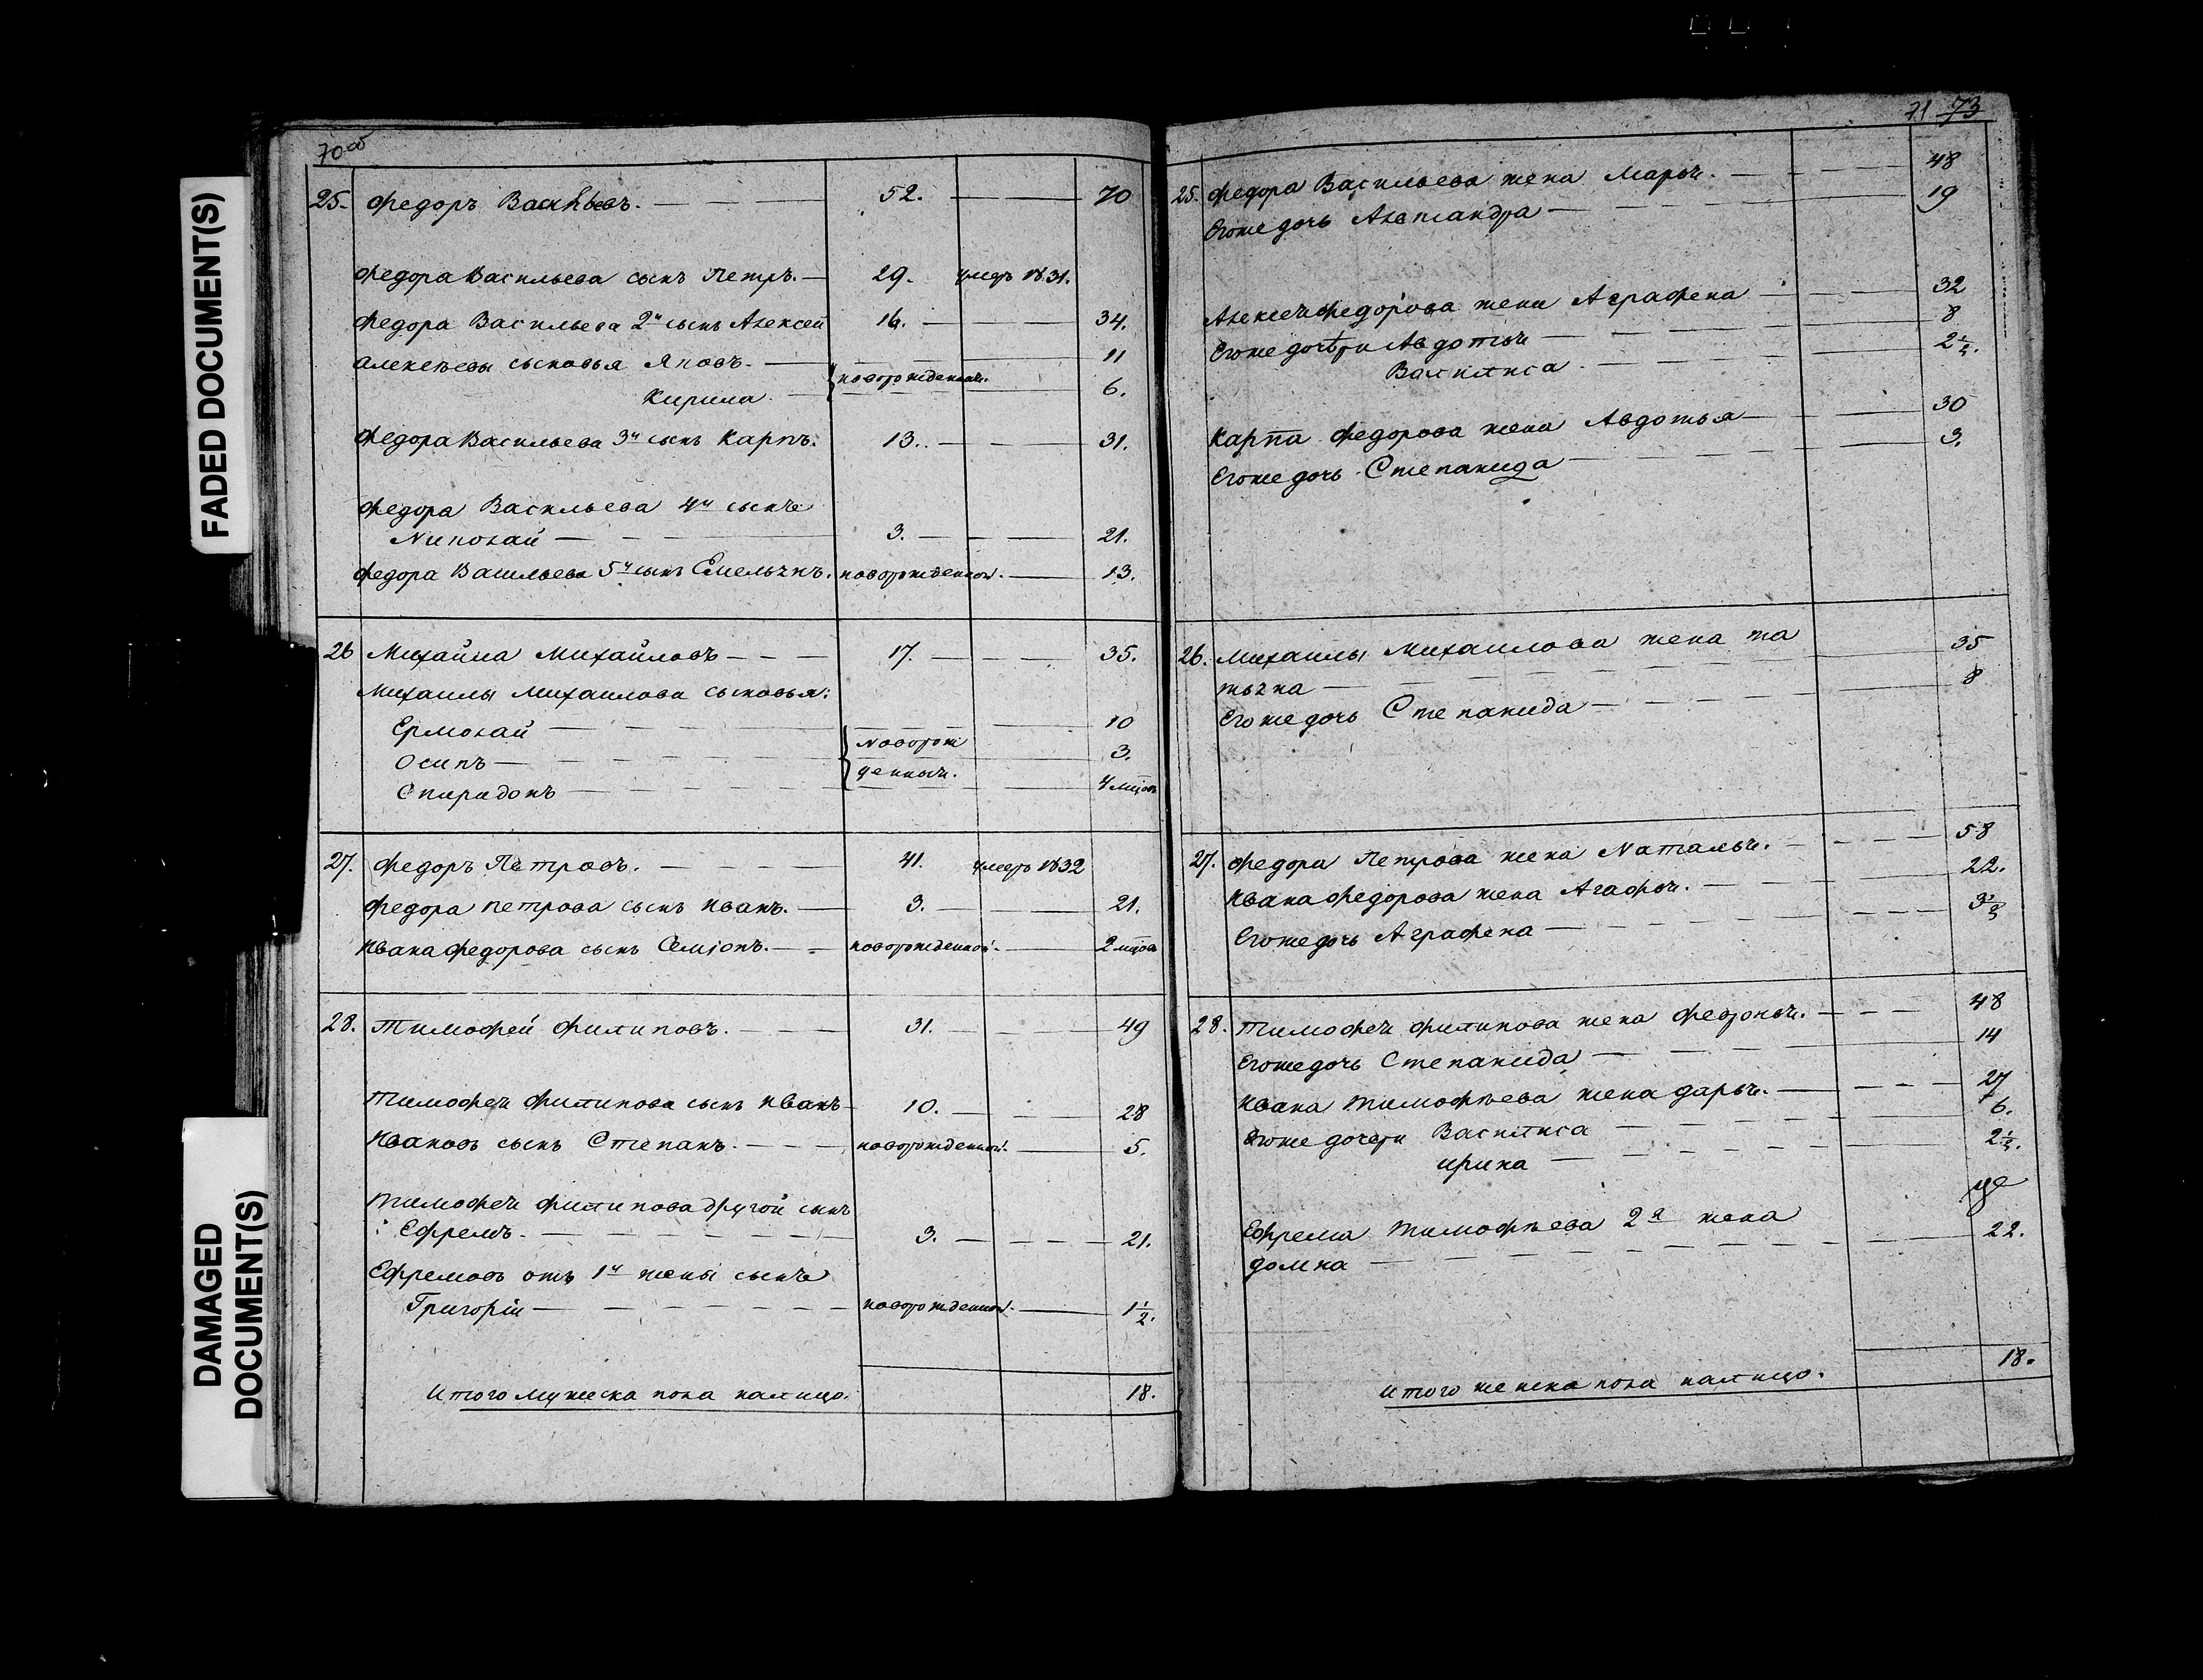 FADED DOCUMENT(S)
DAMAGED
DOCUMENT(S)
70 об
25. Федоръ Васильевъ. 52. 70
Федора Васильева сынъ Петръ. 29. умеръ 1831.
Федора Васильева 2й сынъ Алексей 16. 34.
Алексѣевы сыновья Яковъ. 11
новорожденныи.
Кирила. 6.
Федора Васильева 3й сынъ Карпъ. 13. 31.
Федора Васильева 4й сынъ
Николай 3. 21.
Федора Васильева 5й сынъ Емельянъ. новорожденной. 13.
26 Михайла Михайловъ 17. 35.
Михаилы Михаилова сыновья:
Ермолай 10
новорож
Осипъ 3.
денныи.
Спиридонъ 4 мцов
27. Федоръ Петровъ. 41. умеръ 1832
Федора Петрова сынъ Иванъ. 3. 21.
Ивана Федорова сынъ Семіонъ. новорожденной. 2 мцов
28. Тимофей Филиповъ. 31. 49
Тимофея Филипова сынъ Иванъ 10. 28
Ивановъ сынъ Степанъ. новорожденной. 5.
Тимофея Филипова другой сынъ
Ефремъ. 3. 21.
Ефремовъ отъ 1й жены сынъ
Григоріи новорожденной. 1 1/2.
Итого мужеска пола налицо. 18.
71 73
25. Федора Васильева жена Марья. 48
Егоже дочь Александра 19
Алексея Федорова жена Аграфена 32
Егоже дочери Авдотья 8
Василиса. 2 1/2.
Карпа Федорова жена Авдотья 30
Егоже дочь Степанида 3.
26. Михаилы Михаилова жена та
тьяна 35
Егоже дочь Степанида 8
27. Федора Петрова жена Наталья. 58
Ивана Федорова жена Агафья. 22.
Егоже дочь Аграфена 3 1/2
28. Тимофея Филипова жена Февронья. 48
Егоже дочь Степанида 14
Ивана Тимофѣева жена дарья. 27
Егоже дочери Василиса 6.
ирина 2 1/2.
Ефрема Тимофѣева 2я жена
домна 22.
Итого женска пола налицо. 18.